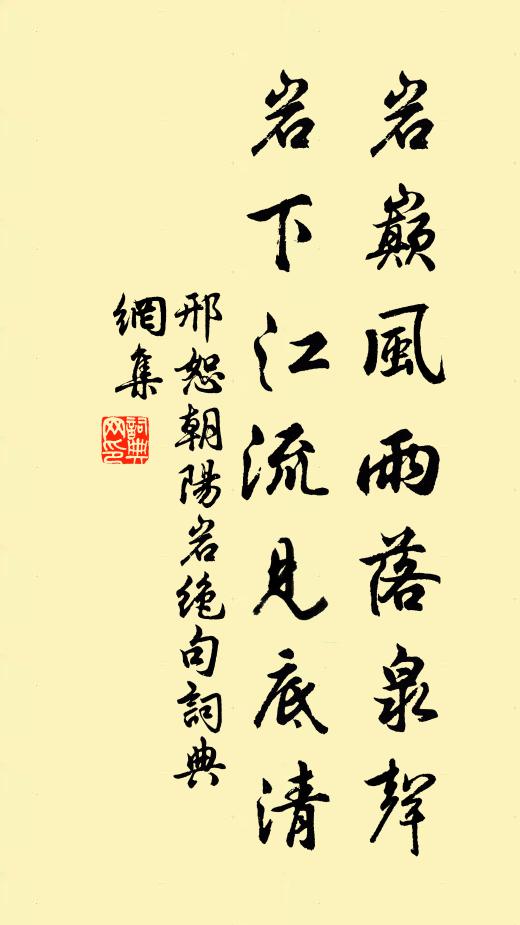 岩巔風雨落泉聲
岩下江流見底清
邢恕朝陽岩絶句詞典
網集
詞典
网印